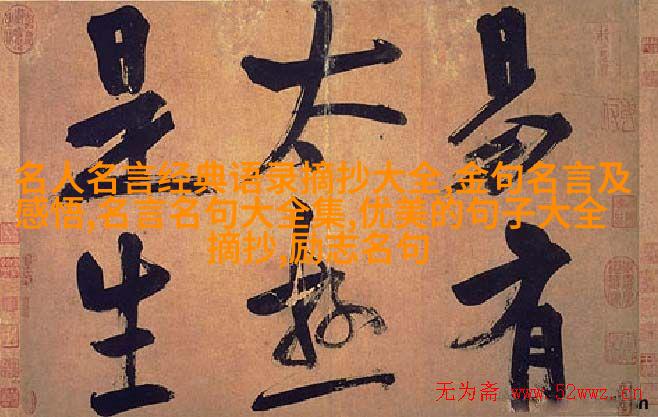 易有
太極
是生
名人名言经典语录摘抄大全,金句名言及
感悟,名言名句大全集,优美的句子大全
摘抄,励志名句
无为斋 www.52wwz.cn